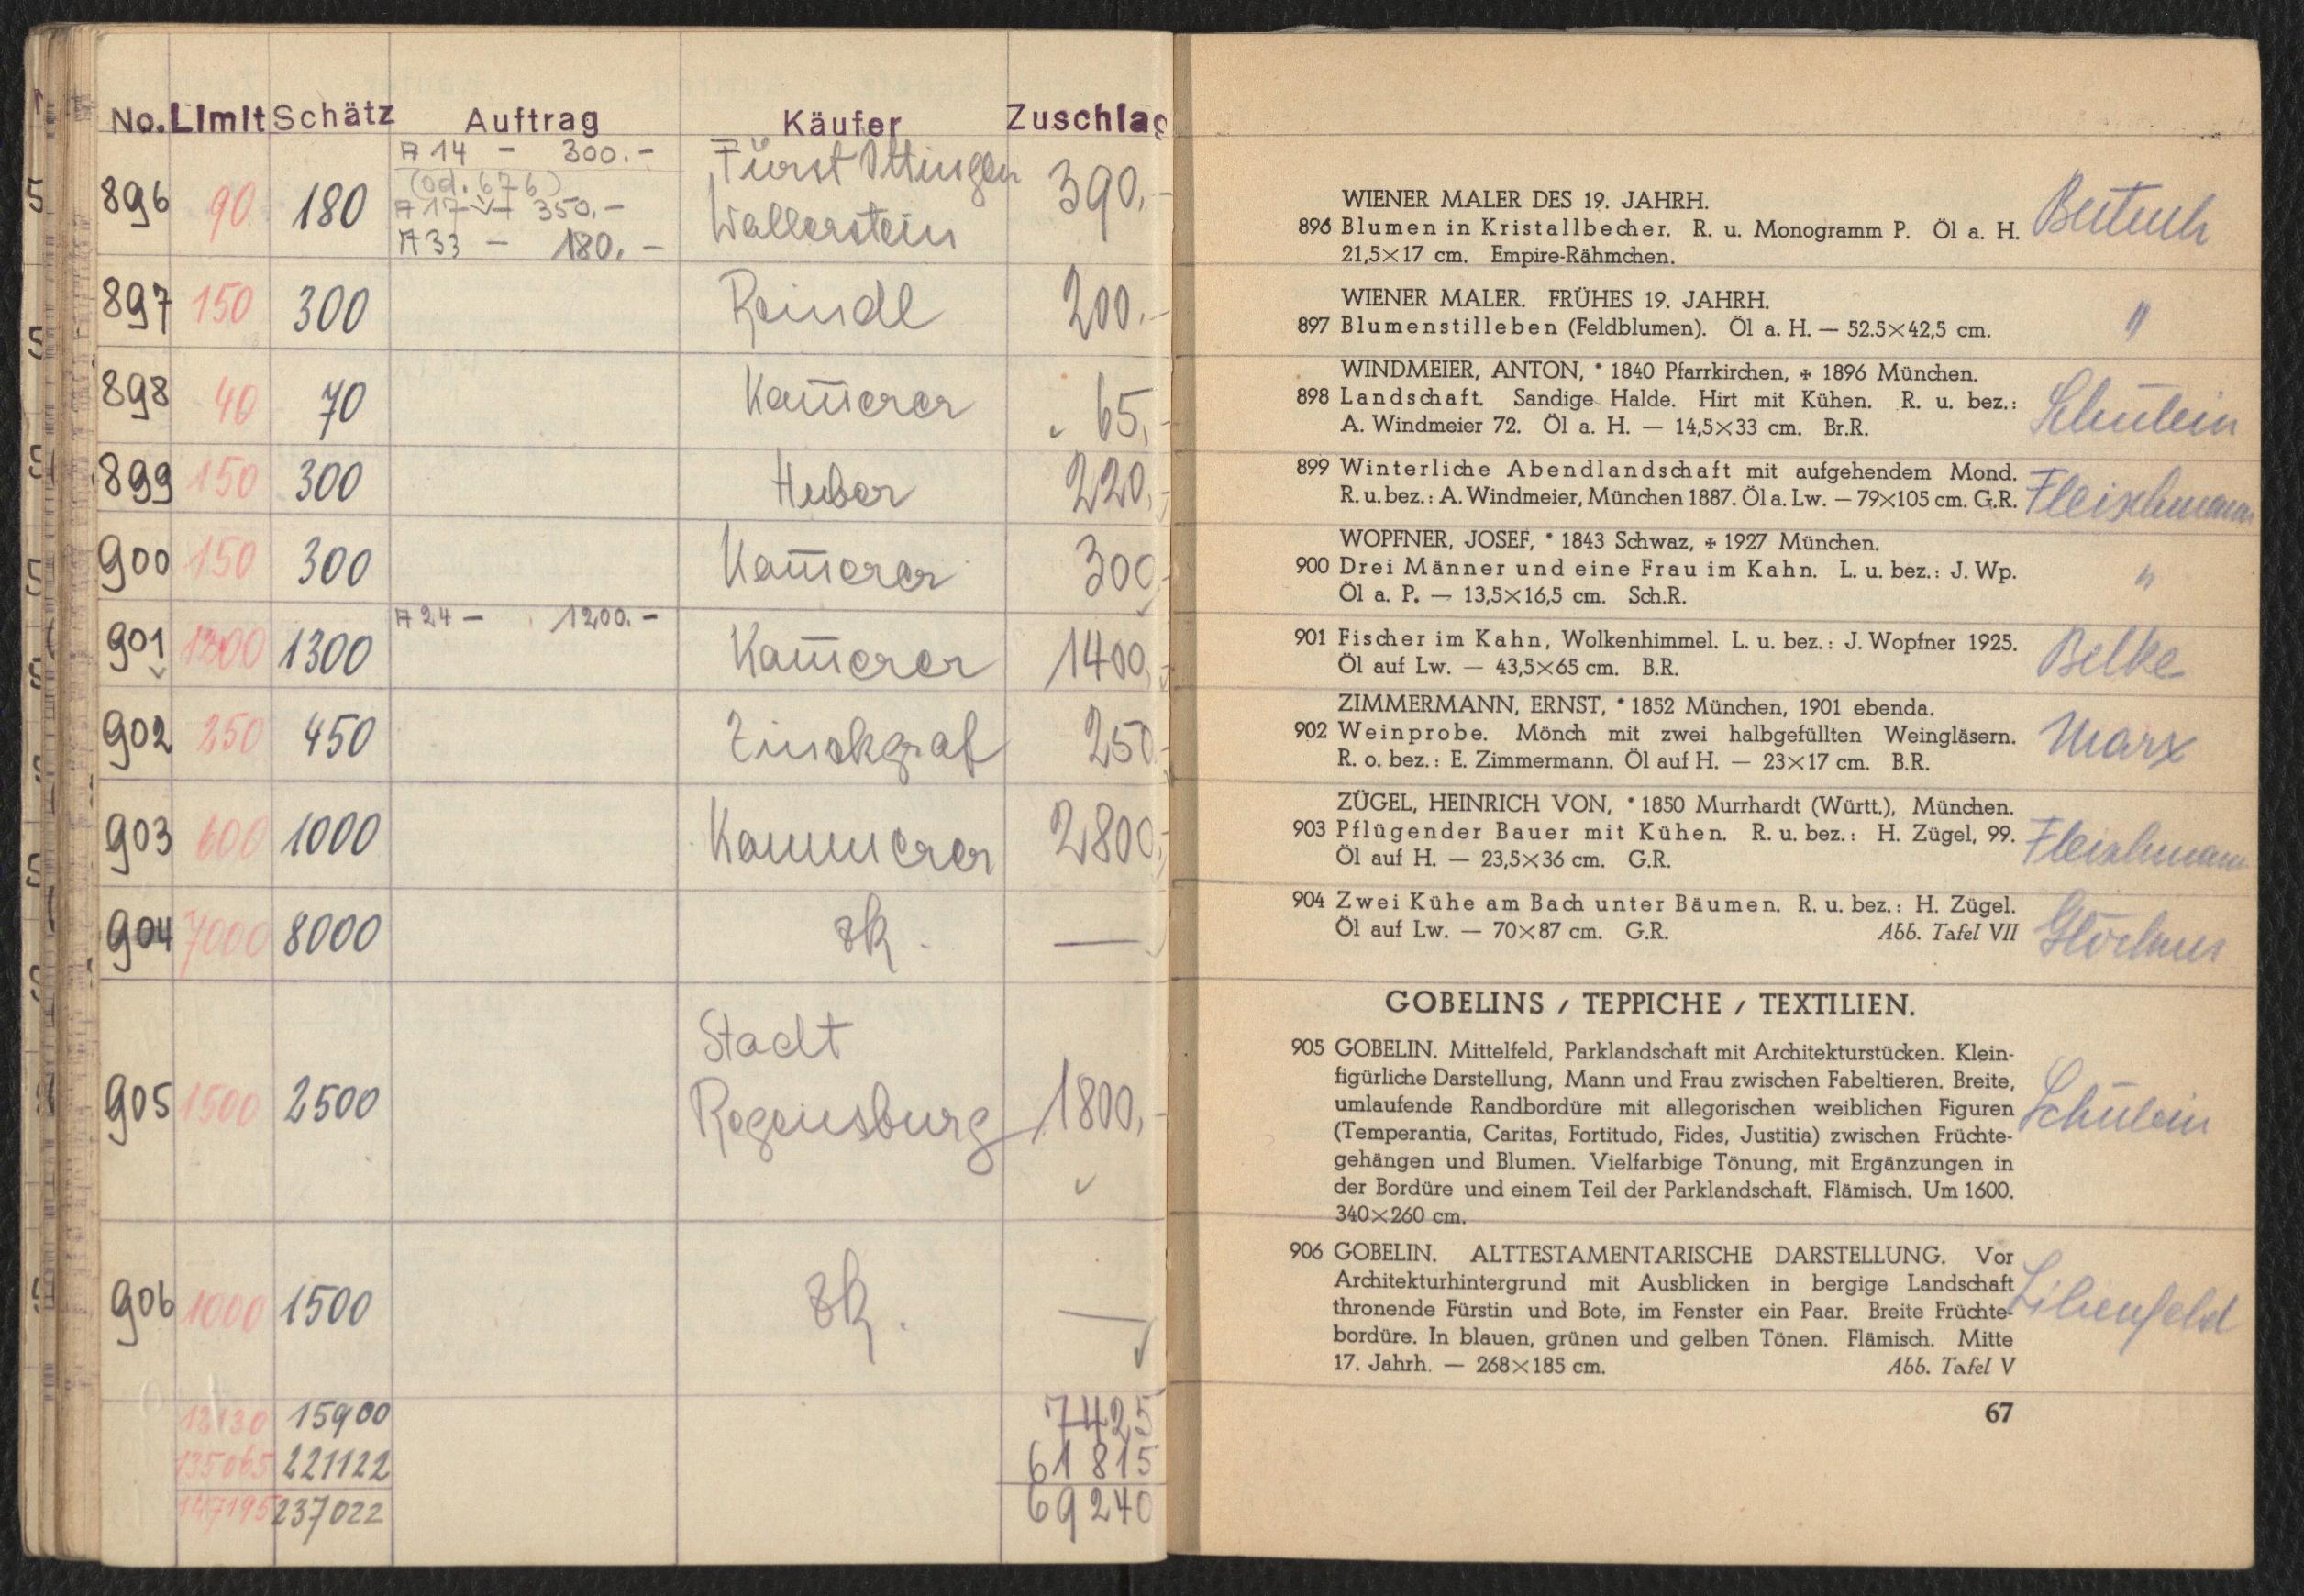 No. Limit Schätz Auftrag Käufer Zuschlag
A 14 - 300.-
(od. 676)
896 90 180 A 17 - 350.- Fürst Öttingen 390.-
A 33 - 180.- Wallerstein
897 150 300 Reindl 200.-
898 40 70 Kam̅erer 65.-
899 150 300 Huber 220.-
900 150 300 Kam̅erer 300.-
A 24 - 1200.-
901 1300 Kam̅erer 1400.-
902 250 450 Zinckgraf 250.-
903 600 1000 Kammerer 2800.-
904 7000 8000 zk. —
Stadt
905 1500 2500 Regensburg 1800.-
906 1000 1500 zk. —
12130 15900 7425
135065 221122 61815
147195 237022 69240
WIENER MALER DES 19. JAHRH.
896 Blumen in Kristallbecher. R. u. Monogramm P. Öl a. H.
21,5×17 cm. Empire-Rähmchen.
WIENER MALER. FRÜHES 19. JAHRH.
897 Blumenstilleben (Feldblumen). Öl a. H. — 52.5×42,5 cm. "
WINDMEIER, ANTON, * 1840 Pfarrkirchen, + 1896 München.
898 Landschaft. Sandige Halde. Hirt mit Kühen. R. u. bez.: Schülein
A. Windmeier 72. Öl a. H. — 14,5×33 cm. Br.R.
899 Winterliche Abendlandschaft mit aufgehendem Mond.
R. u. bez.: A. Windmeier, München 1887. Öl a. Lw. — 79×105 cm. G.R. Fleischmann
WOPFNER, JOSEF, * 1843 Schwaz, + 1927 München.
900 Drei Männer und eine Frau im Kahn. L. u. bez.: J. Wp. "
Öl a. P. — 13,5×16,5 cm. Sch.R.
901 Fischer im Kahn, Wolkenhimmel. L. u. bez.: J. Wopfner 1925. Belke
Öl auf Lw. — 43,5×65 cm. B.R.
ZIMMERMANN, ERNST, * 1852 München, 1901 ebenda.
902 Weinprobe. Mönch mit zwei halbgefüllten Weingläsern. Marx
R. o. bez.: E. Zimmermann. Öl auf H. — 23×17 cm. B.R.
ZÜGEL, HEINRICH VON, * 1850 Murrhardt (Württ.), München.
903 Pflügender Bauer mit Kühen. R. u. bez.: H. Zügel, 99. Fleischmann
Öl auf H. — 23,5×36 cm. G.R.
904 Zwei Kühe am Bach unter Bäumen. R. u. bez.: H. Zügel.
Öl auf Lw. — 70×87 cm. G.R. Abb. Tafel VII
GOBELINS / TEPPICHE / TEXTILIEN.
905 GOBELIN. Mittelfeld, Parklandschaft mit Architekturstücken. Klein-
figürliche Darstellung, Mann und Frau zwischen Fabeltieren. Breite,
umlaufende Randbordüre mit allegorischen weiblichen Figuren Schülein
(Temperantia, Caritas, Fortitudo, Fides, Justitia) zwischen Früchte-
gehängen und Blumen. Vielfarbige Tönung, mit Ergänzungen in
der Bordüre und einem Teil der Parklandschaft. Flämisch. Um 1600.
340×260 cm.
906 GOBELIN. ALTTESTAMENTARISCHE DARSTELLUNG. Vor
Architekturhintergrund mit Ausblicken in bergige Landschaft
thronende Fürstin und Bote, im Fenster ein Paar. Breite Früchte- Lilienfeld
bordüre. In blauen, grünen und gelben Tönen. Flämisch. Mitte
17. Jahrh. — 268×185 cm. Abb. Tafel V
67